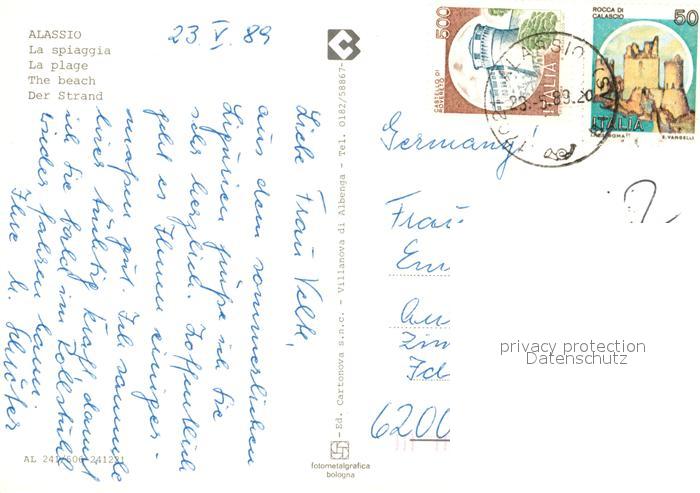 ALASSIO
La spiaggia
La plage
The beach
Der Strand
23. V. 89
Liebe Frau Velte,
aus dem sommerlichen
Ligurien grüße ich Sie
sehr herzlich. Hoffentlich
geht es Ihnen einiger-
maßen gut. Ich sammle
hier Kraft damit
ich Sie bald im Rollstuhl
wieder fahren kann.
Ihre
AL 241/506 241221
- Ed. Cartonova s.n.c. - Villanova di Albenga - Tel. 0182/58867-
fotometalgrafica
bologna
500
ITALIA
ROCCA DI
CALASCIO
50
ITALIA
E. VANGELLI
ALASSIO
23.-5.89.20
Germany!
Frau
Em
Zim
6200
privacy protection
Datenschutz